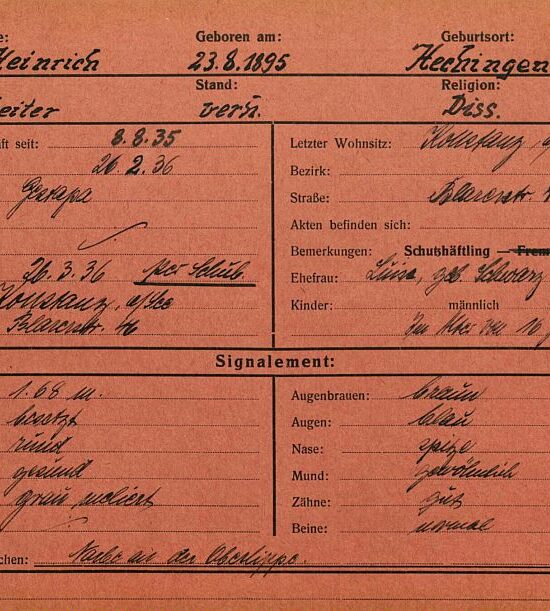 e: Geboren am: Geburtsort:
Heinrich 23.8.1895 Hechingen
Stand: Religion:
eiter verh. Diss.
ft seit: 8.8.35 Letzter Wohnsitz: Konstanz
20.2.36 Bezirk:
Gestapa Straße: Blarerstr.
Akten befinden sich:
Bemerkungen: Schutzhäftling – Frem
26.3.36 per Schub. Ehefrau: Luise, geb. Schwarz
Konstanz, a/See Kinder: männlich
Blarerstr. Im Alter von 16
Signalement:
1.68 m. Augenbrauen: braun
besetzt Augen: blau
rund Nase: spitze
gesund Mund: gewöhnlich
grau meliert Zähne: gut
Beine: normal
chen: Narbe an der Oberlippe.